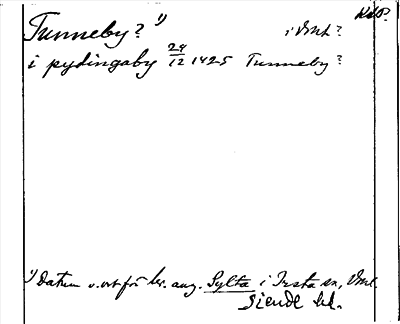 KHP.
Tunneby? 1) i Vml?
i pydingaby 29/12 1425 Tunneby?
1) Datum o. ort för br. ang. Sylta i Irsta sn, Vml.
Siende hd.